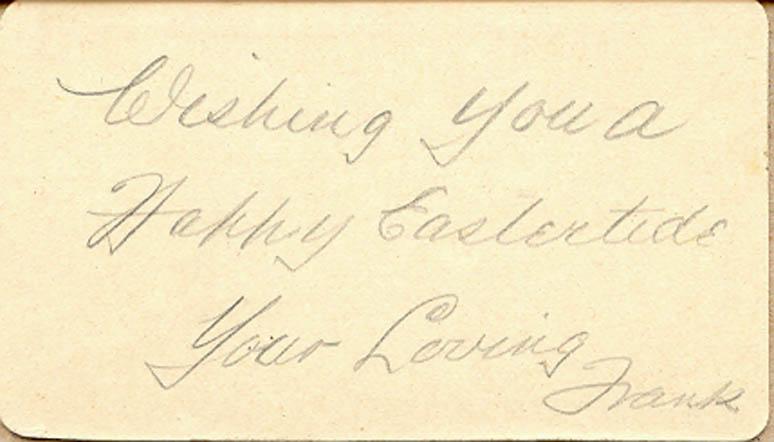 Wishing You a
Happy Eastertide
Your Loving
Frank